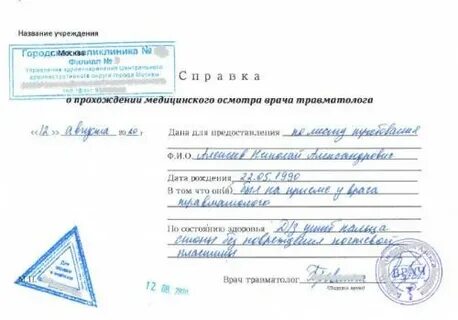 Название учреждения
Городская поликлиника №
г. Москва
Филиал №
Управление здравоохранения Центрального
административного округа города Москвы
Справка
о прохождении медицинского осмотра врача травматолога
«12» августа 2010г. Дана для предоставления по месту требования
Ф.И.О. Алексеев Николай Александрович
Дата рождения 22.05.1990
В том что он(а) был на приеме у врача
травматолога
По состоянию здоровья Д/з ушиб пальца
стопы без повреждения ногтевой
пластины
Для
справок
М.П.
12 08 2010
Врач травматолог
(Подпись врача)
ВРАЧ